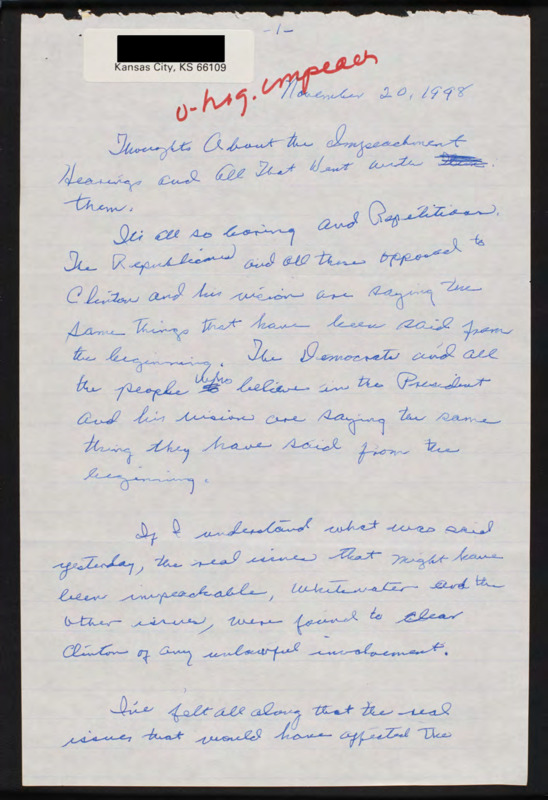 -1-
Kansas City, KS 66109
o-hrg. impeach
November 20, 1998
Thoughts About the Impeachment
Hearings and All That Went with
them.
It's all so boring and Repetitious.
The Republicans and all those opposed to
Clinton and his vision are saying the
same things that have been said from
the beginning. The Democrats and all
the people who believe in the President
and his vision are saying the same
thing they have said from the
beginning.
If I understand what was said
yesterday, the real issues that might have
been impeachable, Whitewater and the
other issues, were found to clear
Clinton of any unlawful involvement.
I've felt all along that the real
issues that would have affected the